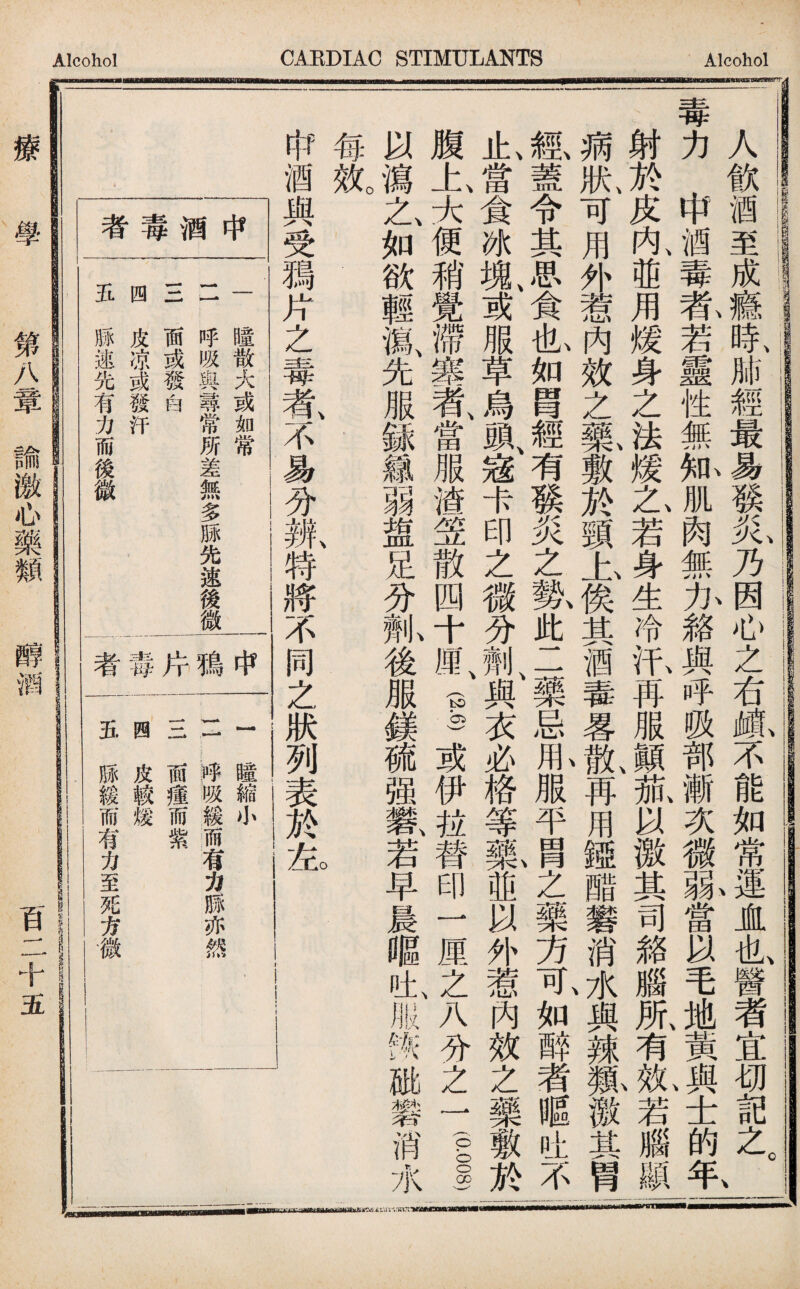 Alcohol
CARDIAC STIMULANTS
Alcohol
人飲酒至成癮時、肺經最易發炎、乃因心之右䪼、不能如常運血也、醫者宜切記之。
毒力　中酒毒者、若靈性無知、肌肉無力、絡與呼吸部漸次微弱、當以毛地黃與士的年、
射於皮內、並用煖身之法煖之、若身生冷汗、再服顛茄、以激其司絡腦所、有效、若腦顯
病狀、可用外惹內效之藥、敷於頸上、俟其酒毒畧散、再用錏醋礬消水與辣類、激其胃
經、蓋令其思食也、如胃經有發炎之勢、此二藥忌用、服平胃之藥方可、如醉者嘔吐不
止、當食冰塊、或服草烏頭、寇卡印之微分劑、與衣必格等藥、並以外惹內效之藥敷於
腹上、大便稍覺滯塞者、當服渣笠散四十厘、(2.6)或伊拉替印一厘之八分之一(0.008)
以瀉之、如欲輕瀉、先服銾綠弱塩足分劑、後服鎂硫强礬、若早晨嘔吐、服砒礬消水
每效。
中酒與受鴉片之毒者、不易分辦、特將不同之狀列表於左。
中酒毒者
一　瞳散大或如常
二　呼吸與尋常所差無多脉先速後微
三　面或發白
四　皮凉或發汗
五　脉速先有力而後微
中鴉片毒者
一　瞳縮小
二　呼吸緩而有力脉亦然
三　面瘇而紫
四　皮較煖
五　脉緩而有力至死方微
療學　第八章　論激心藥類　醇酒　百二十五